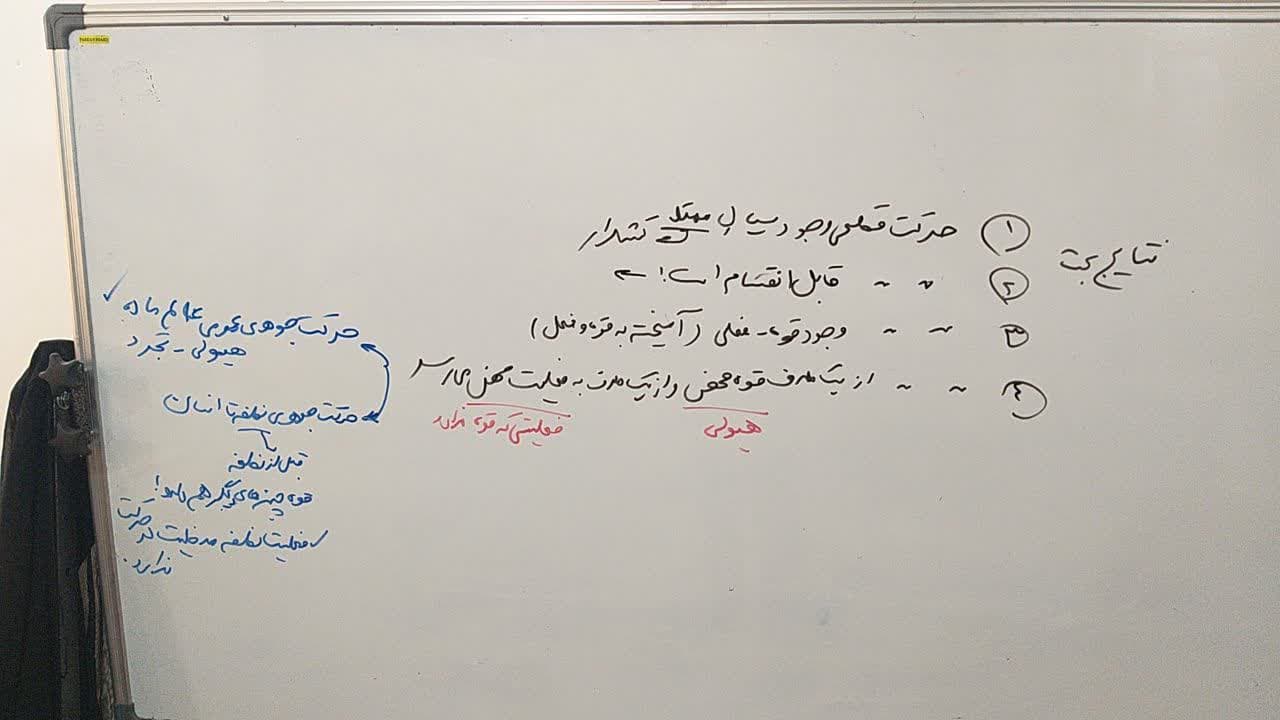 نتایج بحث
۱ حرکت قطعی وجود سیال و ممتد و کشدار
۲ 〃 〃 قابل انقسام است!
۳ 〃 〃 وجود قوه - فعلی (آمیخته به قوه و فعل)
۴ 〃 〃 از یک طرف قوه محض و از یک طرف به فعلیت محض می‌رسد
هیولی
فعلیتی که قوه ندارد
حرکت جوهری عمومی عالم ماده ✓
هیولی - تجرد
حرکت جوهری نطفه تا انسان
قبل از نطفه
قوه چیزهای دیگر هم دارد!
فعلیت نطفه مدخلیت در حرکت
ندارد.